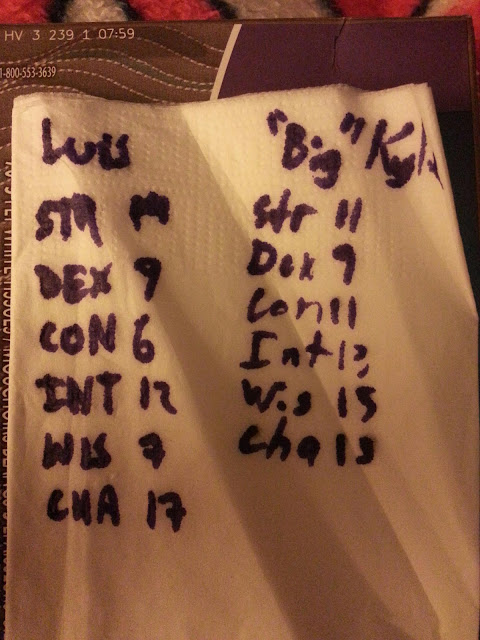 HV 3 239 1 07:59
1-800-553-3639
Luis
STR
DEX 9
CON 6
INT 12
WIS 7
CHA 17
"Big" Kyle
Str 11
Dex 9
Con 11
Int
Wis 15
Cha